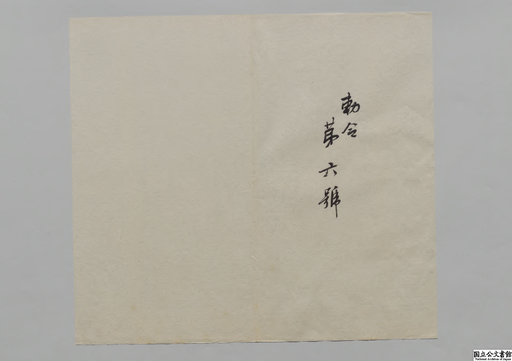 勅令
第六號
国立公文書館
National Archives of Japan